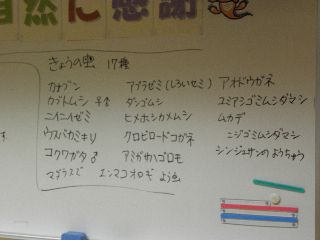 自然に感謝
きょうの虫 17種
カナブン アブラゼミ(しろいセミ) アオドウガネ
カブトムシ ♀♂ ダンゴムシ ユミアシゴミムシダマシ
ニイニイゼミ ヒメホシカメムシ ムカデ
ウスバカミキリ クロビロードコガネ ニジゴミムシダマシ
コクワガタ ♂ アミガサハゴロモ シンジュサンのようちゅう
マダラスズ エンマコオロギ よう虫
す